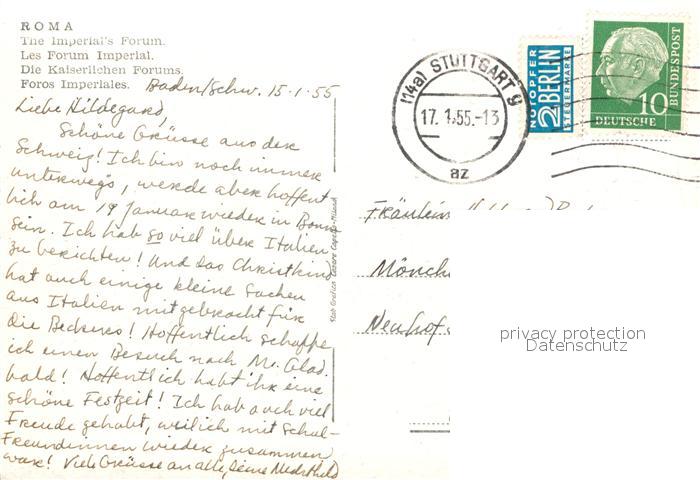 ROMA
The Imperial's Forum.
Les Forum Imperial.
Die Kaiserlichen Forums.
Foros Imperiales.
Baden/Schw. 15.1.55
Liebe Hildegard,
Schöne Grüsse aus der
Schweiz! Ich bin noch immer
unterwegs, werde aber hoffent
lich am 19 Januar wieder in Bonn
sein. Ich hab so viel über Italien
zu berichten! Und das Christkind
hat auch einige kleine Sachen
aus Italien mitgebracht für
die Beckers! Hoffentlich schaffe
ich einen Besuch nach M. Glad.
bald! Hoffentlich habt ihr eine
schöne Festzeit! Ich hab auch viel
Freude gehabt, weil ich mit Schul-
Freundinnen wieder zusammen
war! Viele Grüsse an alle, Deine
(14a) STUTTGART 9
17.1.55.-13
az
NOTOPFER
2 BERLIN
STEUERMARKE
10
DEUTSCHE
BUNDESPOST
Fräulein
Mönch
Neuhof
privacy protection
Datenschutz